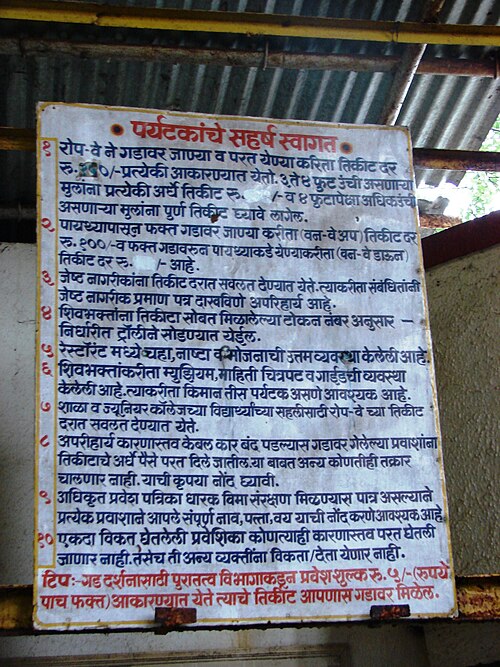 पर्यटकांचे सहर्ष स्वागत
१ रोप-वे ने गडावर जाण्या व परत येण्या करिता तिकीट दर
रु. /-प्रत्येकी आकारण्यात येतो. ३ ते ४ फुट उंची असणाऱ्या
मुलांना प्रत्येकी अर्धे तिकीट रु. /- व ४ फुटापेक्षा अधिकउंची
असणाऱ्या मुलांना पुर्ण तिकीट घ्यावे लागेल.
२. पायथ्यापासुन फक्त गडावर जाण्या करीता (वन-वे अप) तिकीट दर
रु. १००/-व फक्त गडावरुन पायथ्याकडे येण्याकरीता (वन-वे डाऊन)
तिकीट दर रु. /- आहे.
३ जेष्ट नागरीकांना तिकीट दरात सवलत देण्यात येते.त्याकरीता संबंधितांनी
जेष्ट नागरीक प्रमाण पत्र दाखविणे अपरिहार्य आहे.
४ शिवभक्तांना तिकीटा सोबत मिळालेल्या टोकन नंबर अनुसार –
निर्धारीत ट्रॉलीने सोडण्यात येईल.
५ रेस्टॉरंट मध्ये चहा, नाष्टा व भोजनाची उत्तम व्यवस्था केलेली आहे.
६ शिवभक्तांकरीता म्युझियम, माहिती चित्रपट व गाईडची व्यवस्था
केलेली आहे.त्याकरीता किमान तीस पर्यटक असणे आवश्यक आहे.
७ शाळा व ज्युनियर कॉलेजच्या विद्यार्थ्यांच्या सहलीसाठी रोप-वे च्या तिकीट
दरात सवलत देण्यात येते.
८ अपरीहार्य कारणास्तव केबल कार बंद पडल्यास गडावर गेलेल्या प्रवाशांना
तिकीटाचे अर्धे पैसे परत दिले जातील.या बाबत अन्य कोणतीही तक्रार
चालणार नाही. याची कृपया नोंद घ्यावी.
९ अधिकृत प्रवेश पत्रिका धारक विमा संरक्षण मिळण्यास पात्र असल्याने
प्रत्येक प्रवाशाने आपले संपूर्ण नाव, पत्ता, वय याची नोंद करणे आवश्यक आहे.
१० एकदा विकत घेतलेली प्रवेशिका कोणत्याही कारणास्तव परत घेतली
जाणार नाही. तसेच ती अन्य व्यक्तींना विकता/देता येणार नाही.
टिप:-गड दर्शनासाठी पुरातत्व विभागाकडून प्रवेश शुल्क रु. ५/-(रुपये
पाच फक्त) आकारण्यात येते त्याचे तिकीट आपणास गडावर मिळेल.